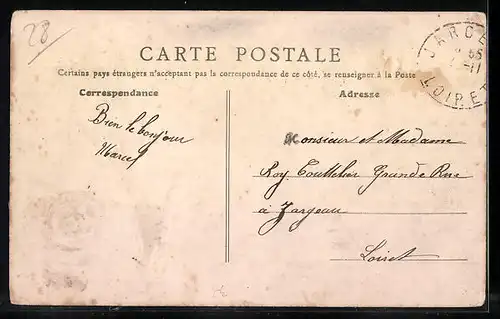 28
CARTE POSTALE
Certains pays étrangers n'acceptant pas la correspondance de ce côté, se renseigner à la Poste
Correspondance
Adresse
Bien le bonjour
Marcel
Monsieur et Madame
Roy Grande Rue
à Jargeau
Loiret
JARGE
55
11
LOIRET